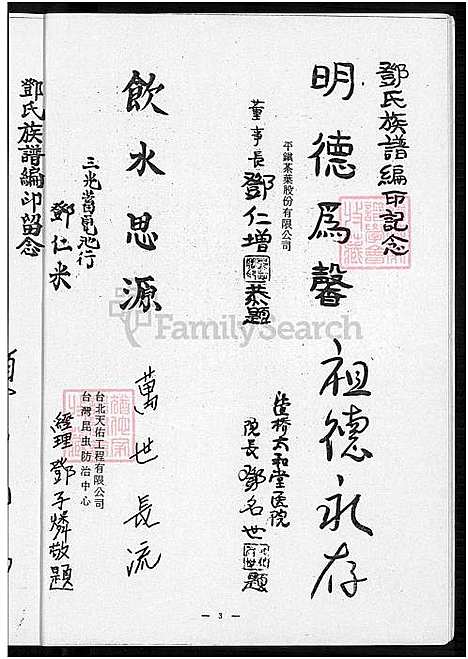 鄧氏族譜編印記念
明德爲馨
平鎮茶葉股份有限公司
董事長 鄧仁增 恭題
祖德永存
板橋太和堂医院
院長 鄧名世 題
飲水思源
三光蓄電池行
鄧仁米
鄧氏族譜編印留念
萬世長流
台北天佑工程有限公司
台灣昆虫防治中心
經理 鄧子燐敬題
FamilySearch
— 3 —